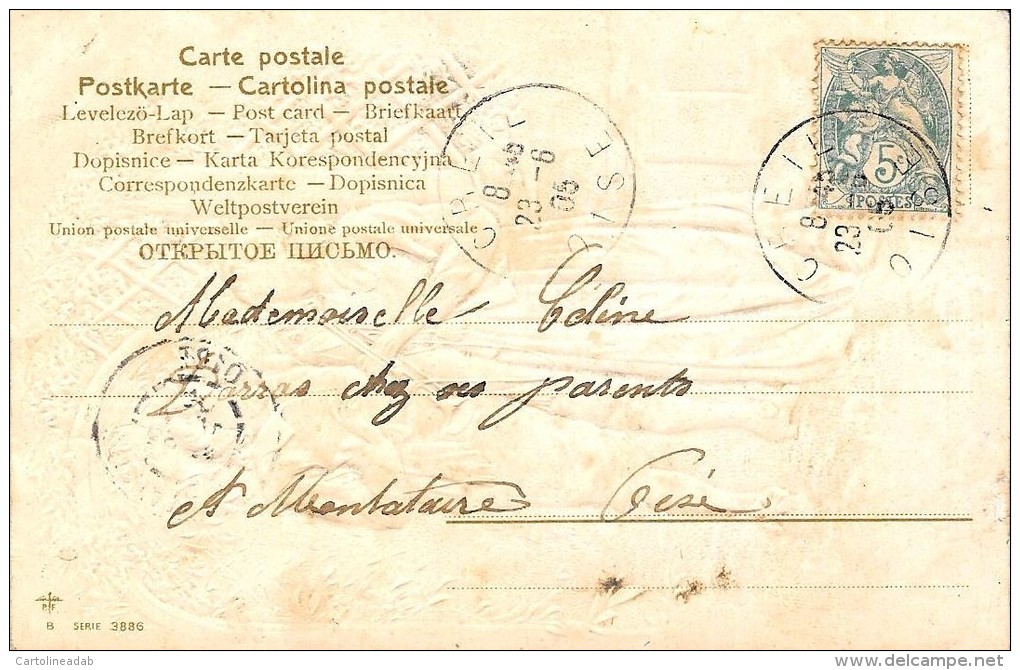 Carte postale
Postkarte — Cartolina postale
Levelező-Lap — Post card — Briefkaart
Brefkort — Tarjeta postal
Dopisnice — Karta Korespondencyjna
Correspondenzkarte — Dopisnica
Weltpostverein
Union postale universelle — Unione postale universale
ОТКРЫТОЕ ПИСЬМО.
CREIL
8
23 -6
05
OISE
5
POSTES
CREIL
8
23
OISE
Mademoiselle Céline
Darras chez ses parents
A Montataire Oise
OISE
P F
B SERIE 3886
Cartolineadab
delcampe.net